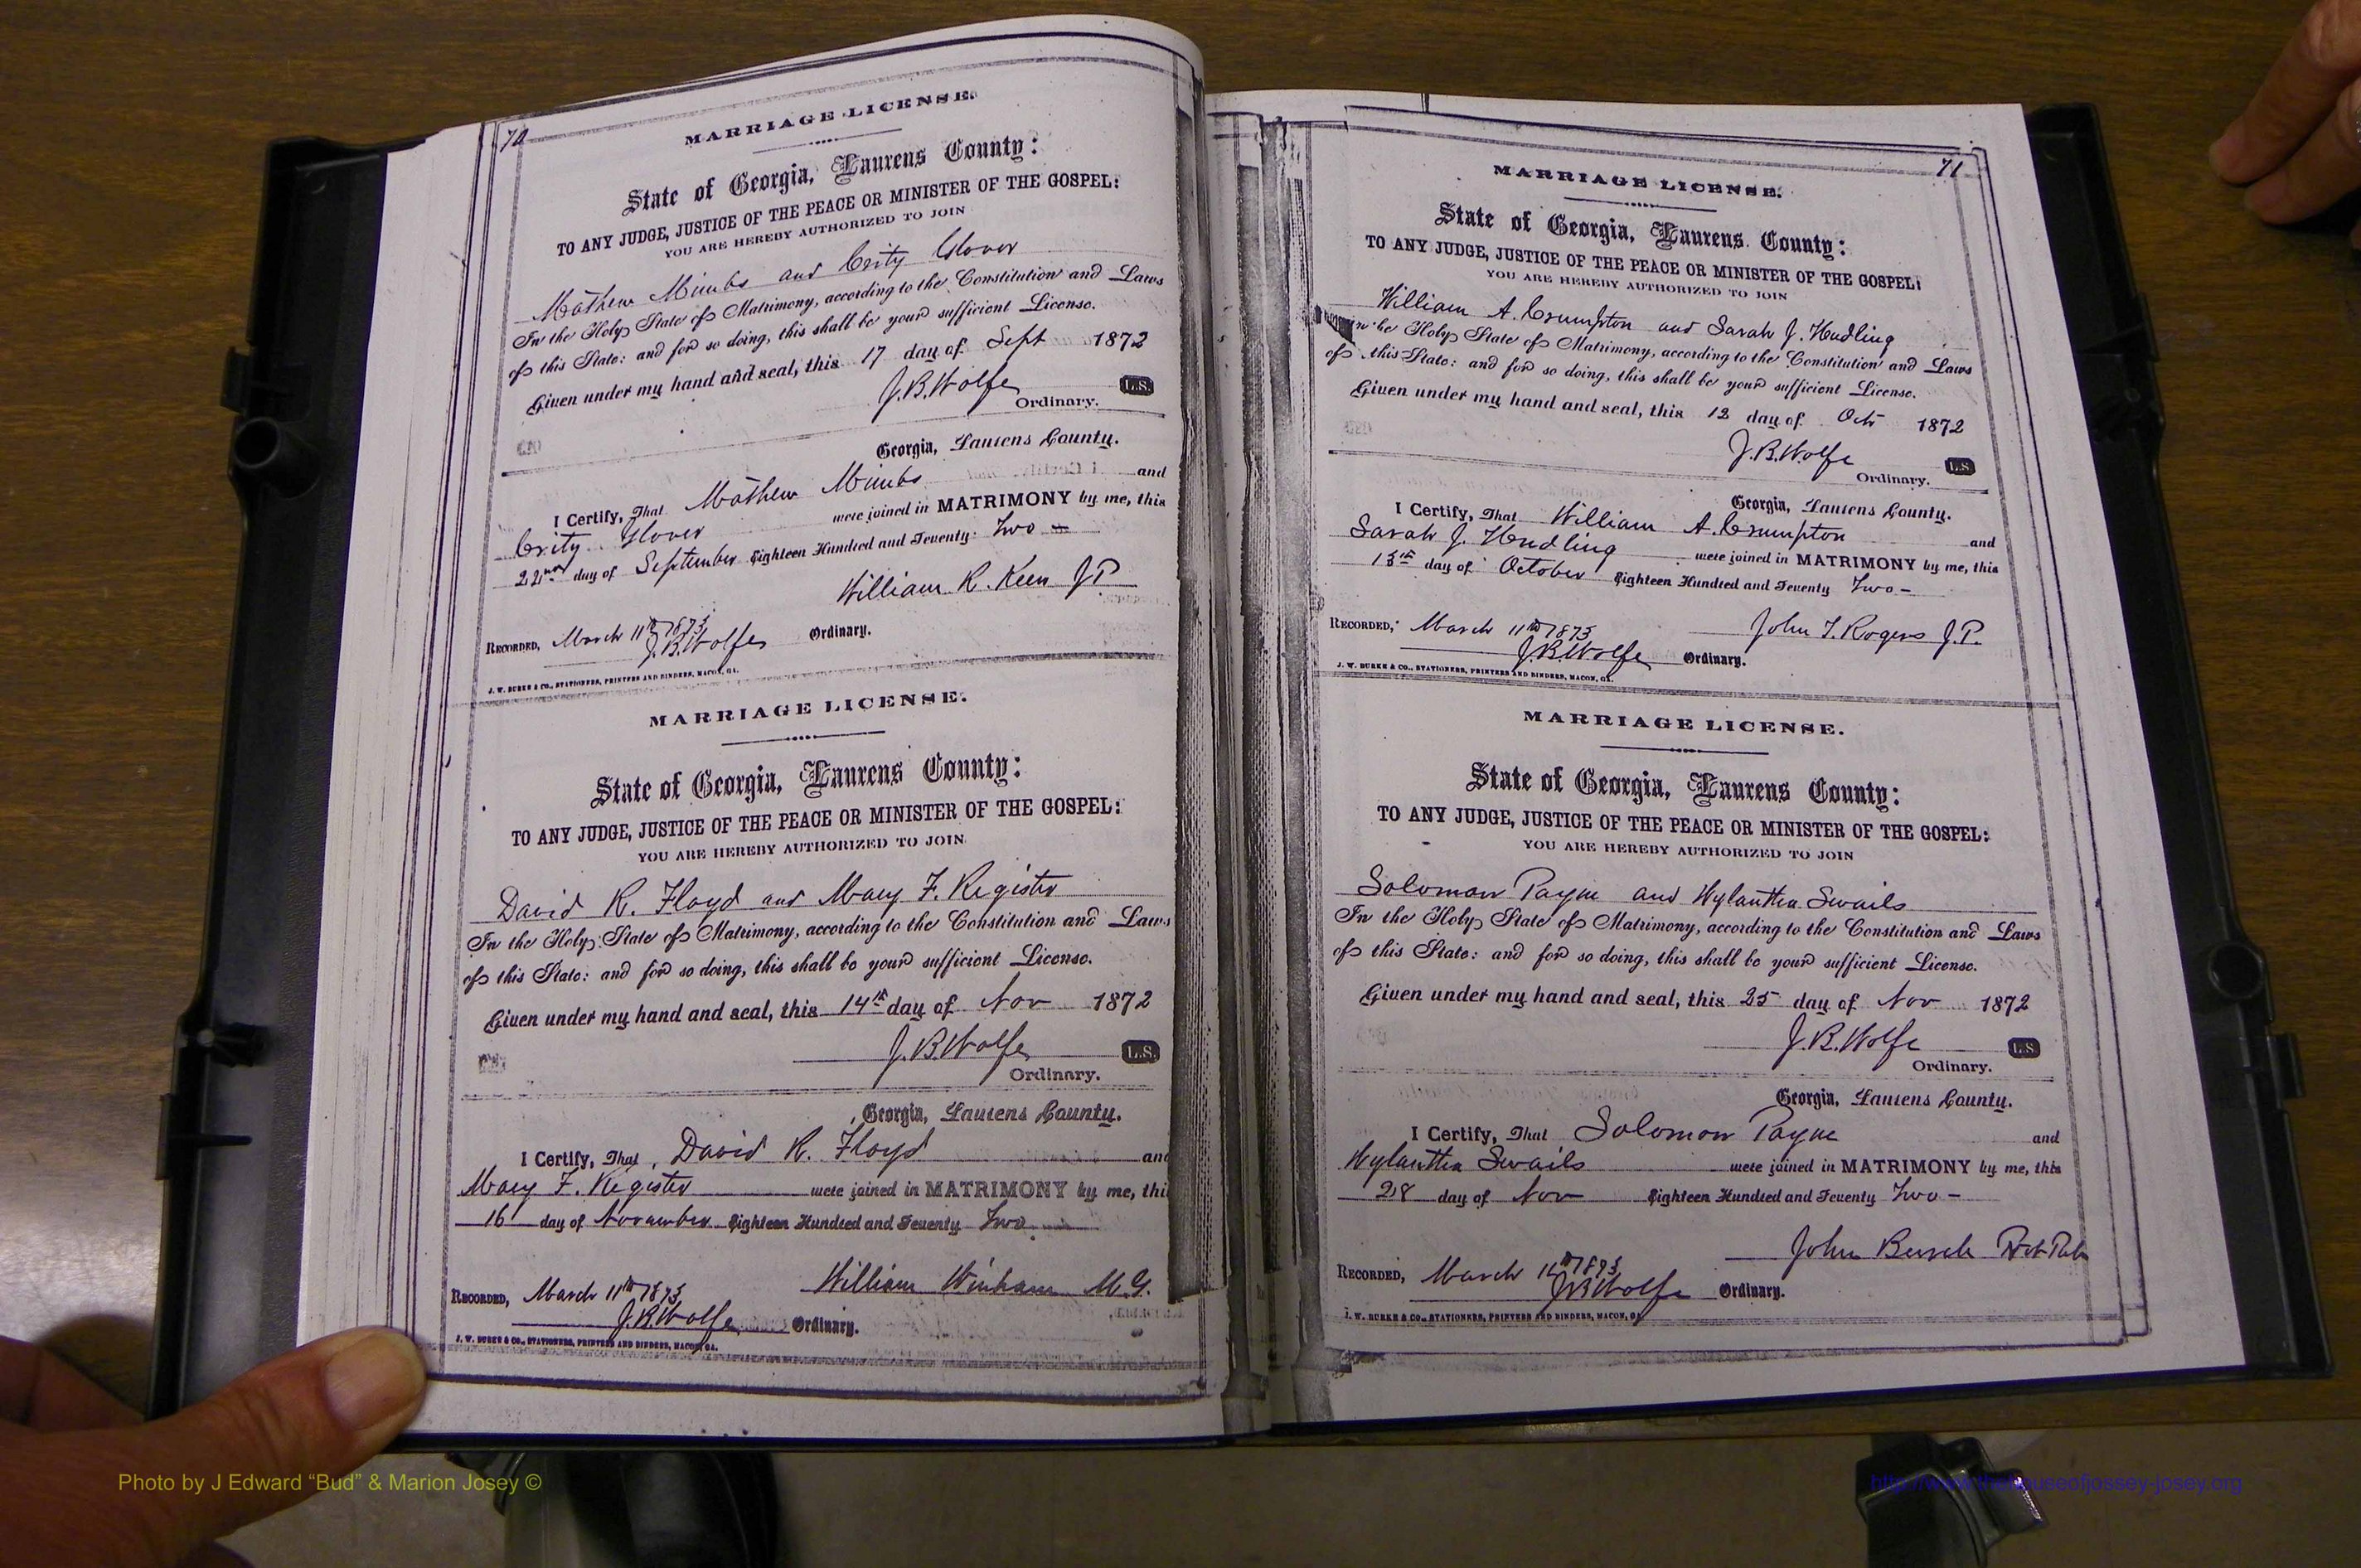 70
MARRIAGE LICENSE.
State of Georgia, Laurens County:
TO ANY JUDGE, JUSTICE OF THE PEACE OR MINISTER OF THE GOSPEL:
YOU ARE HEREBY AUTHORIZED TO JOIN
Mathew Mimbs and Crity Glover
In the Holy State of Matrimony, according to the Constitution and Laws
of this State: and for so doing, this shall be your sufficient License.
Given under my hand and seal, this 17 day of Sept 1872
J.B. Wolfe L.S.
Ordinary.
Georgia, Laurens County.
I Certify, That Mathew Mimbs and
Crity Glover were joined in MATRIMONY by me, this
22nd day of September Eighteen Hundred and Seventy Two
William R. Keen J.P.
Recorded, March 11th 1873
J.B. Wolfe Ordinary.
J. W. BURKE & CO., STATIONERS, PRINTERS AND BINDERS, MACON, GA.
MARRIAGE LICENSE.
State of Georgia, Laurens County:
TO ANY JUDGE, JUSTICE OF THE PEACE OR MINISTER OF THE GOSPEL:
YOU ARE HEREBY AUTHORIZED TO JOIN
David R. Floyd and Mary F. Register
In the Holy State of Matrimony, according to the Constitution and Laws
of this State: and for so doing, this shall be your sufficient License.
Given under my hand and seal, this 14th day of Nov 1872
J.B. Wolfe L.S.
Ordinary.
Georgia, Laurens County.
I Certify, That David R. Floyd and
Mary F. Register were joined in MATRIMONY by me, thi
16 day of November Eighteen Hundred and Seventy Two
William Winham M.G.
Recorded, March 11th 1873
J.B. Wolfe Ordinary.
J. W. BURKE & CO., STATIONERS, PRINTERS AND BINDERS, MACON, GA.
71
MARRIAGE LICENSE.
State of Georgia, Laurens County:
TO ANY JUDGE, JUSTICE OF THE PEACE OR MINISTER OF THE GOSPEL:
YOU ARE HEREBY AUTHORIZED TO JOIN
William A. Crumpton and Sarah J. Hudling
In the Holy State of Matrimony, according to the Constitution and Laws
of this State: and for so doing, this shall be your sufficient License.
Given under my hand and seal, this 12 day of Oct 1872
J.B. Wolfe L.S.
Ordinary.
Georgia, Laurens County.
I Certify, That William A. Crumpton and
Sarah J. Hudling were joined in MATRIMONY by me, this
13th day of October Eighteen Hundred and Seventy Two-
John T. Rogers J.P.
Recorded, March 11th 1873
J.B. Wolfe Ordinary.
J. W. BURKE & CO., STATIONERS, PRINTERS AND BINDERS, MACON, GA.
MARRIAGE LICENSE.
State of Georgia, Laurens County:
TO ANY JUDGE, JUSTICE OF THE PEACE OR MINISTER OF THE GOSPEL:
YOU ARE HEREBY AUTHORIZED TO JOIN
Solomon Payne and Wylantha Swails
In the Holy State of Matrimony, according to the Constitution and Laws
of this State: and for so doing, this shall be your sufficient License.
Given under my hand and seal, this 25 day of Nov 1872
J.B. Wolfe L.S.
Ordinary.
Georgia, Laurens County.
I Certify, That Solomon Payne and
Wylantha Swails were joined in MATRIMONY by me, this
28 day of Nov Eighteen Hundred and Seventy Two-
John Not Pub
Recorded, March 11th 1873
J.B. Wolfe Ordinary.
J. W. BURKE & CO., STATIONERS, PRINTERS AND BINDERS, MACON, GA.
Photo by J Edward “Bud” & Marion Josey ©
http://www.thehouseofjossey-josey.org